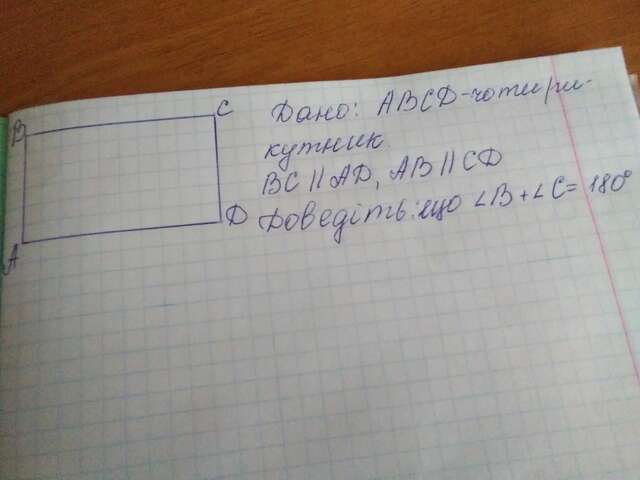 B
C
A
D
Дано: ABCD-чотири-
кутник.
BC || AD, AB || CD
Доведіть: що ∠B + ∠C = 180°